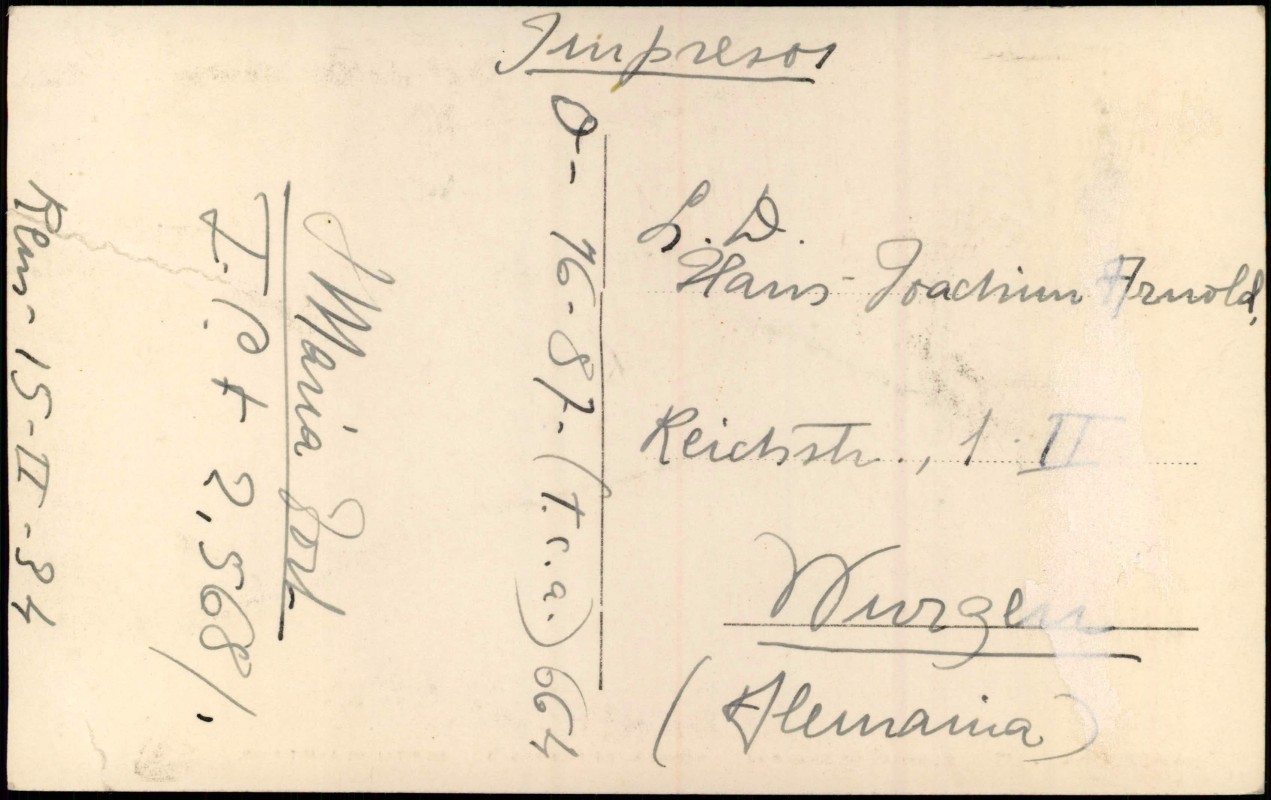 Impresos
S. D.
Hans-Joachim Arnold,
Reichstr., 1 II
Wurzen
(Alemania)
O- 16-87-(t.c.a.) 664
Maria
I.P. + 2,568/.
Rem- 15-II-34